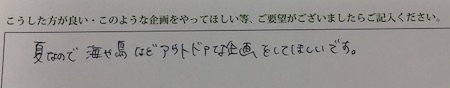 こうした方が良い・このような企画をやってほしい等、ご要望がございましたらご記入ください。
夏なので 海や島などアウトドアな企画をしてほしいです。